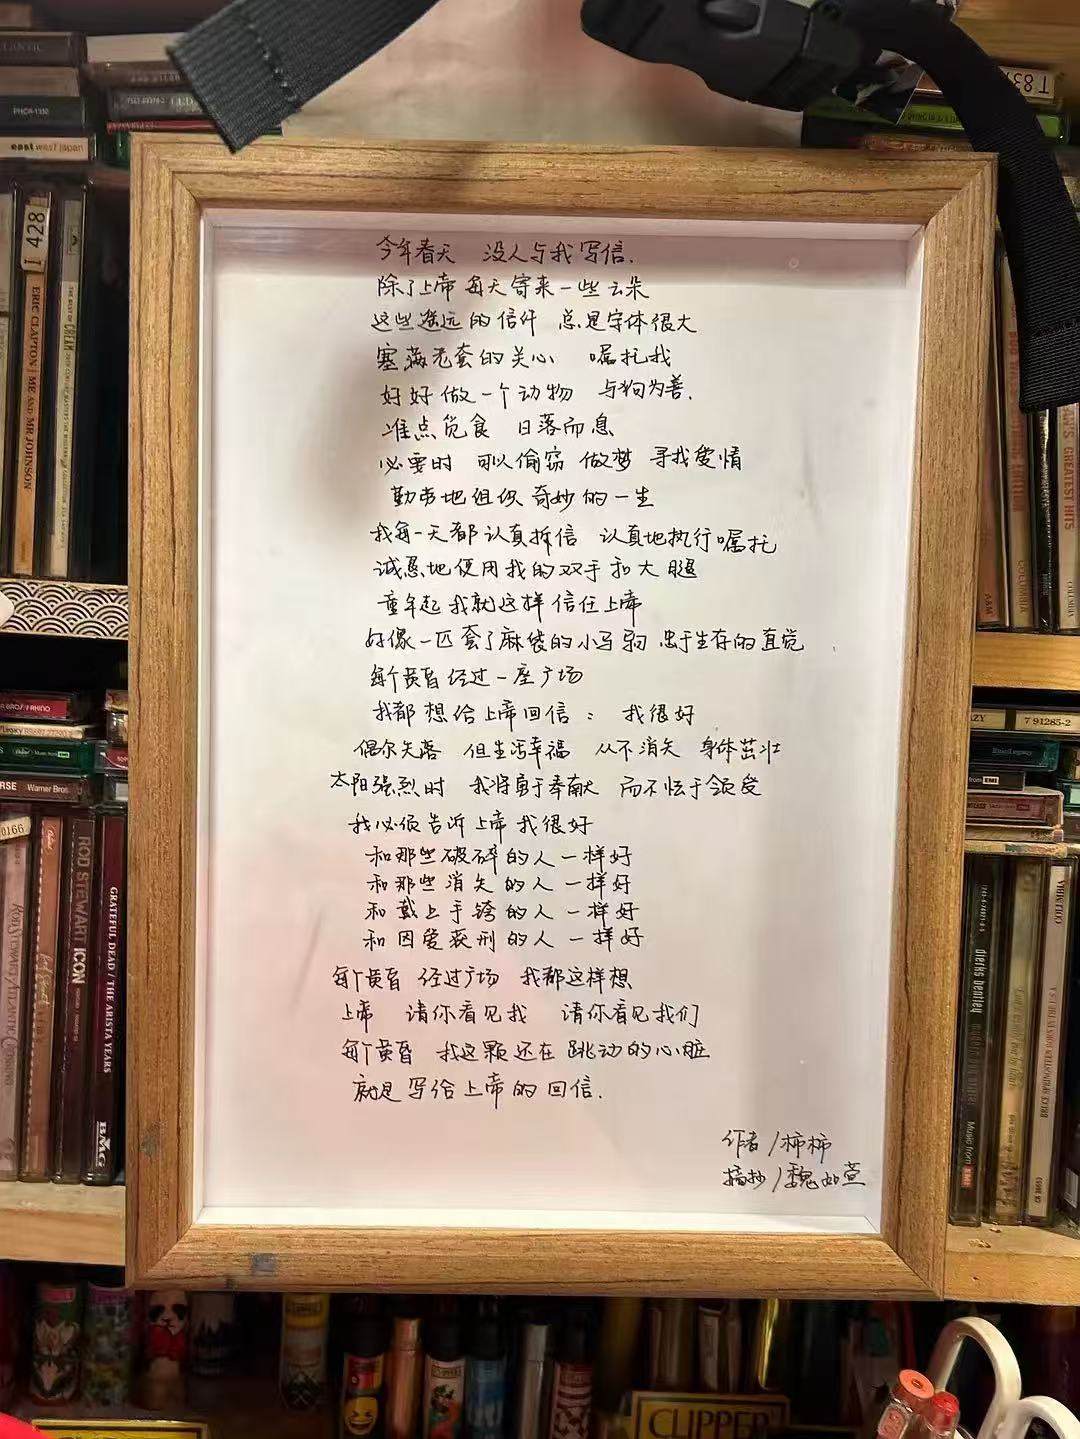 今年春天 没人与我写信.
除了上帝 每天寄来一些云朵
这些遥远的信件 总是字体很大
塞满老套的关心 嘱托我
好好做一个动物 与狗为善.
准点觅食 日落而息
必要时 可以偷窃 做梦 寻找爱情
勤劳地组织奇妙的一生
我每一天都认真拆信 认真地执行嘱托
诚恳地使用我的双手和大腿
童年起我就这样信任上帝
好像一匹套了麻袋的小马驹 忠于生存的直觉
每个黄昏经过一座广场
我都想给上帝回信: 我很好
偶尔失落 但生活幸福 从不消失 身体茁壮
太阳强烈时 我将勇于奉献 而不怯于领受
我必须告诉上帝我很好
和那些破碎的人一样好
和那些消失的人一样好
和戴上手铐的人一样好
和因爱获刑的人一样好
每个黄昏 经过广场 我都这样想
上帝 请你看见我 请你看见我们
每个黄昏 我这颗还在跳动的心脏
就是写给上帝的回信.
作者/柿柿
摘抄/魏如萱
PHCR-1330
east west japan
1 428
ERIC CLAPTON | ME AND MR JOHNSON
THE BEST OF CREAM
T 837
A&M
COLUMBIA
GREATEST HITS
Warner Bros.
0166
ROD STEWART
ICON
GRATEFUL DEAD / THE ARISTA YEARS
BMG
7 91285-2
COLUMBIA
dierks bentley
CLIPPER